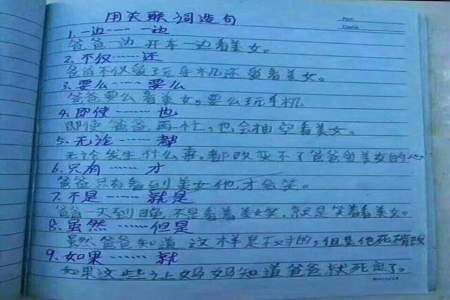 用关联词造句
1.一边……一边
爸爸一边开车一边看美女。
2.不仅……还
爸爸不仅爱玩手机还爱看美女。
3.要么……要么
爸爸要么看美女,要么玩手机
4.即使……也
即使爸爸再忙,也会抽空看美女。
5.无论……都
无论发生什么事,都改变不了爸爸看美女的心
6.只有……才
爸爸只有看到美女他才会笑。
7.不是……就是
爸爸一天到晚不是看着美女笑,就是笑着看美女。
8.虽然……但是
虽然爸爸知道这样是不对的,但是他死不悔改
9.如果……就
如果这些让妈妈知道爸爸就死定了。